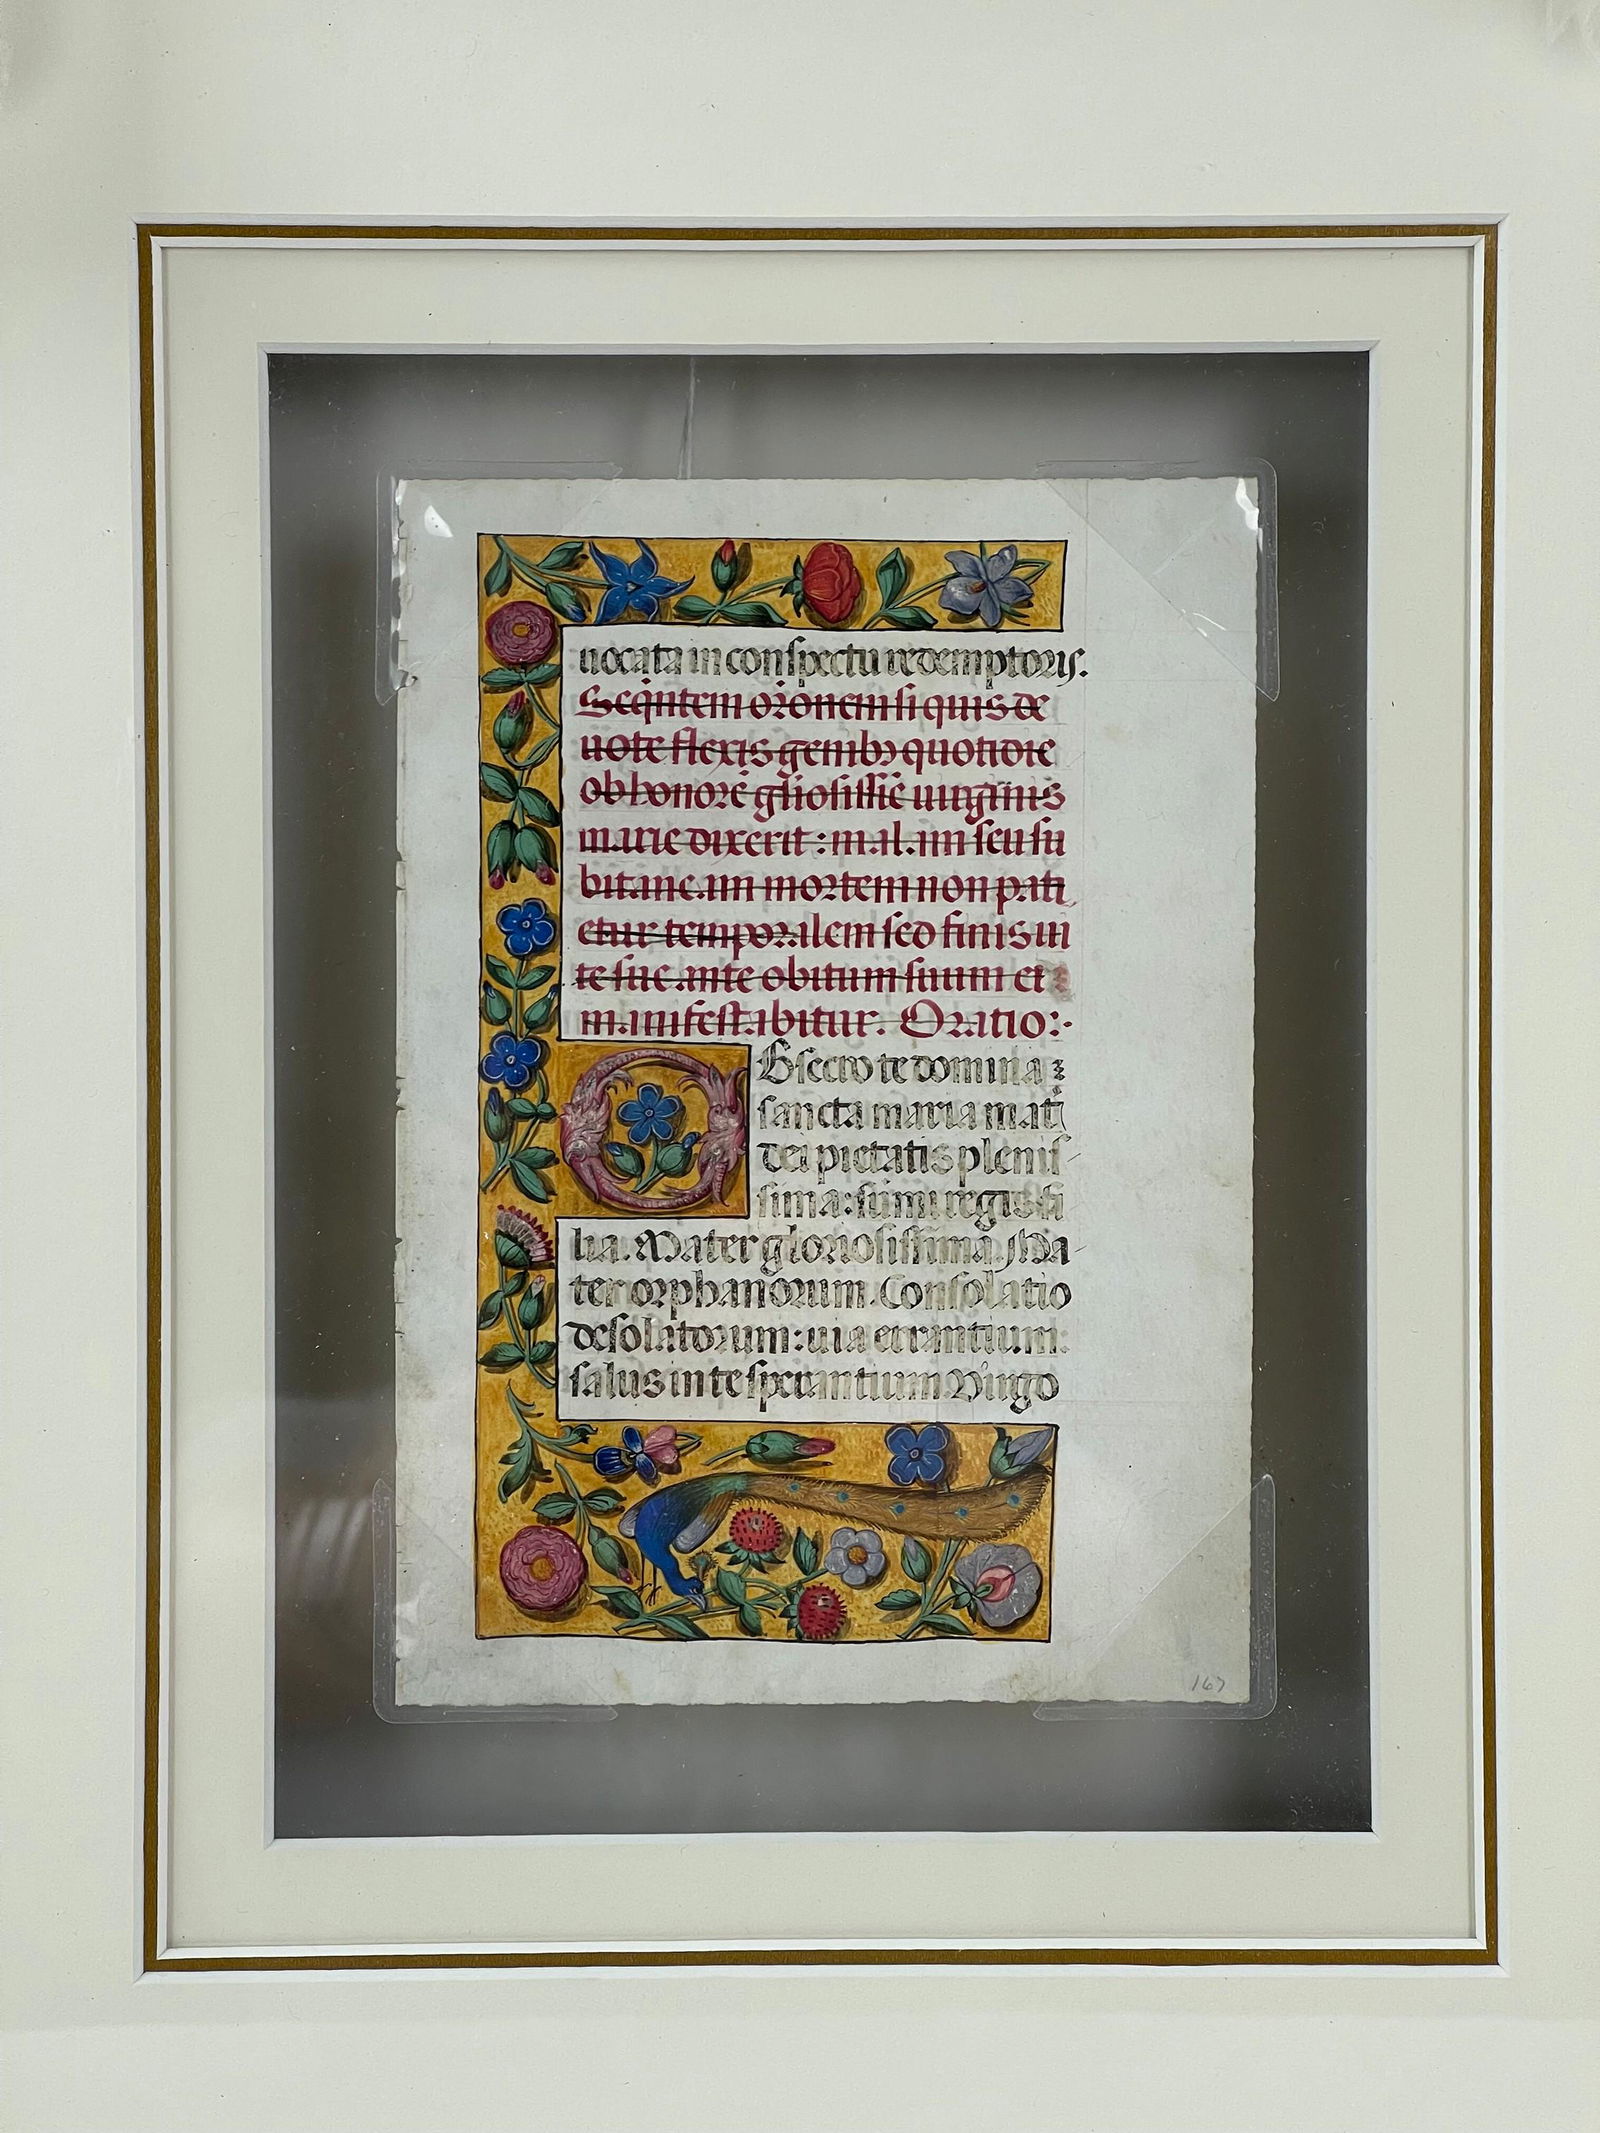 uocata in conspectu redemptoris.
Seq̃ntem orõnem si quis de
uote flexis genibꝫ quotidie
ob honorẽ glĩosissĩe uirginis
marie dixerit: malam seu su
bitaneam mortem non pati
etur temporalem sed finis ui
te sue ante obitum suum et
manifestabitur. Oratio:
Obsecro te domina
sancta maria mat̃
dei pietatis plenis
sima: sũmi regis fi
lia. Mater gloriosissima. Ma
ter orphanorum. Consolatio
desolatorum: uia errantium:
salus in te sperantium. Virgo
167